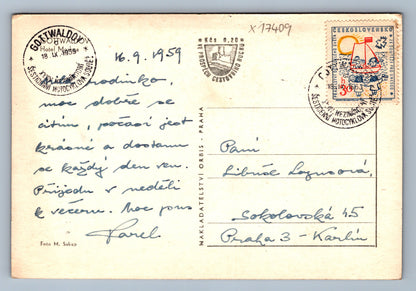 GOTTWALDOV
Hotel Moskva
18.IX.1959
ŠESTIDENNÍ MOTOCYKLOVÁ SOUTĚŽ
Kčs 0,20
X 17409
ČESKOSLOVENSKO
ŠESTIDENNÍ MOTOCYKLOVÁ SOUTĚŽ
16.9.1959
Milá rodinko
moc dobře se
cítím, počasí jest
krásné a dostanu
se každý den ven.
Přijedu v neděli
k večeru. Moc pus
Karel
Foto M. Sekyp
NAKLADATELSTVÍ ORBIS - PRAHA
Paní
Libuše
Sokolovská 45
Praha 3 - Karlín